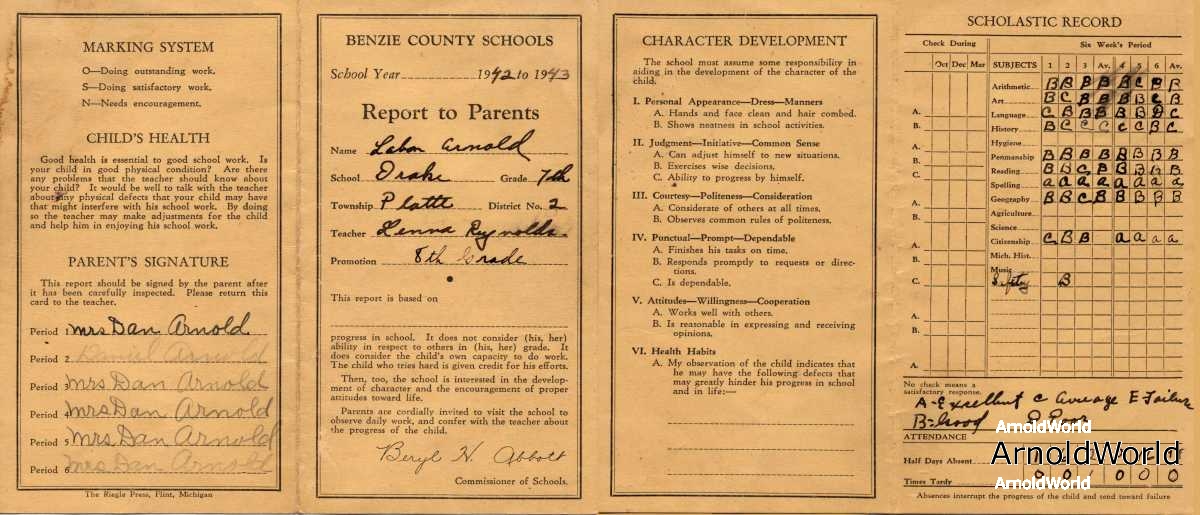 MARKING SYSTEM
O—Doing outstanding work.
S—Doing satisfactory work.
N—Needs encouragement.
CHILD'S HEALTH
Good health is essential to good school work. Is
your child in good physical condition? Are there
any problems that the teacher should know about
your child? It would be well to talk with the teacher
about any physical defects that your child may have
that might interfere with his school work. By doing
so the teacher may make adjustments for the child
and help him in enjoying his school work.
PARENT'S SIGNATURE
This report should be signed by the parent after
it has been carefully inspected. Please return this
card to the teacher.
Period 1 Mrs Dan Arnold
Period 2 Daniel Arnold
Period 3 Mrs Dan Arnold
Period 4 Mrs Dan Arnold
Period 5 Mrs Dan Arnold
Period 6 Mrs Dan Arnold
The Riegle Press, Flint, Michigan
BENZIE COUNTY SCHOOLS
School Year 1942 to 1943
Report to Parents
Name Labon Arnold
School Drake Grade 7th
Township Platte District No. 2
Teacher Lenna Reynolds
Promotion 8th Grade
This report is based on
progress in school. It does not consider (his, her)
ability in respect to others in (his, her) grade. It
does consider the child's own capacity to do work.
The child who tries hard is given credit for his efforts.
Then, too, the school is interested in the develop-
ment of character and the encouragement of proper
attitudes toward life.
Parents are cordially invited to visit the school to
observe daily work, and confer with the teacher about
the progress of the child.
Beryl H. Abbott
Commissioner of Schools.
CHARACTER DEVELOPMENT
The school must assume some responsibility in
aiding in the development of the character of the
child.
I. Personal Appearance—Dress—Manners
A. Hands and face clean and hair combed.
B. Shows neatness in school activities.
II. Judgment—Initiative—Common Sense
A. Can adjust himself to new situations.
B. Exercises wise decisions.
C. Ability to progress by himself.
III. Courtesy—Politeness—Consideration
A. Considerate of others at all times.
B. Observes common rules of politeness.
IV. Punctual—Prompt—Dependable
A. Finishes his tasks on time.
B. Responds promptly to requests or direc-
tions.
C. Is dependable.
V. Attitudes—Willingness—Cooperation
A. Works well with others.
B. Is reasonable in expressing and receiving
opinions.
VI. Health Habits
A. My observation of the child indicates that
he may have the following defects that
may greatly hinder his progress in school
and in life:—
SCHOLASTIC RECORD
Check During Six Week's Period
Oct Dec Mar SUBJECTS 1 2 3 Av. 4 5 6 Av.
Arithmetic B B B B B C B B
Art B C B B B B C B
A. Language C B B B B B D C
B. History B C C C C C B C
Hygiene
A. Penmanship B B B B B B B B
B. Reading B B C B B B B B
C. Spelling a a a a a a a a
A. Geography B B C B B B B B
B. Agriculture
Science
A. Citizenship C B B a a a a
B. Mich. Hist.
Music
C. Safety B
A.
B.
A.
B.
A.
No check means a
satisfactory response.
A-Excellent C Average E-Failure
B-Good D Poor
ArnoldWorld
ATTENDANCE
ArnoldWorld
Half Days Absent
Times Tardy 0 0 0 0 0
ArnoldWorld
Absences interrupt the progress of the child and tend toward failure